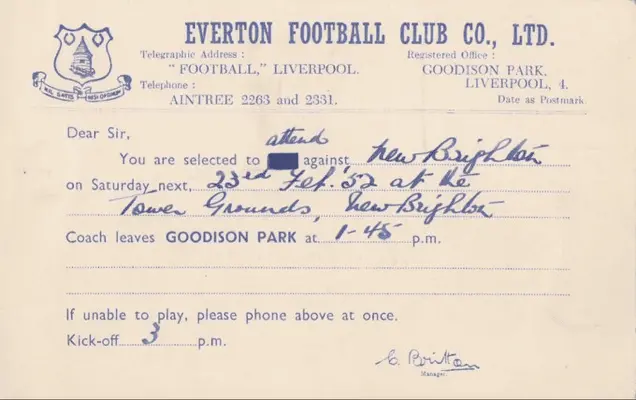 EVERTON FOOTBALL CLUB CO., LTD.
Telegraphic Address :
"FOOTBALL," LIVERPOOL.
Telephone :
AINTREE 2263 and 2331.
Registered Office :
GOODISON PARK,
LIVERPOOL, 4.
Date as Postmark
NIL SATIS NISI OPTIMUM
Dear Sir,
attend
You are selected to against, New Brighton
on Saturday next, 23rd Feb. '52 at the
Tower Grounds, New Brighton
Coach leaves GOODISON PARK at 1-45 p.m.
If unable to play, please phone above at once.
Kick-off 3 p.m.
C. Britton
Manager.